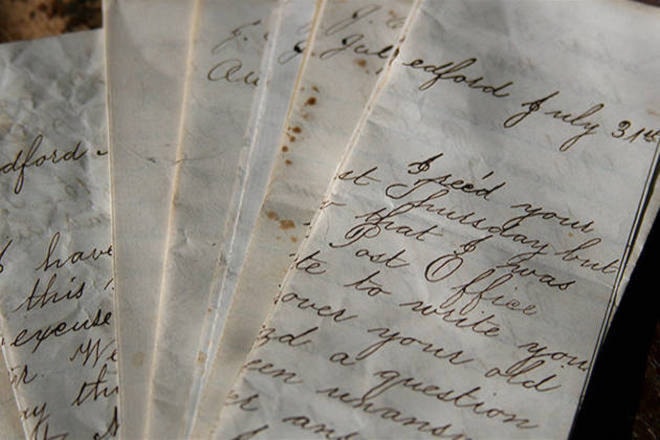 dford
I have
this
excuse
r. We
ay thi
Au
J. Jul
edford July 31st
I rec'd your
st Thursday but
that I was
Post Office
te to write you
over your old
nd a question
een unansw
er and